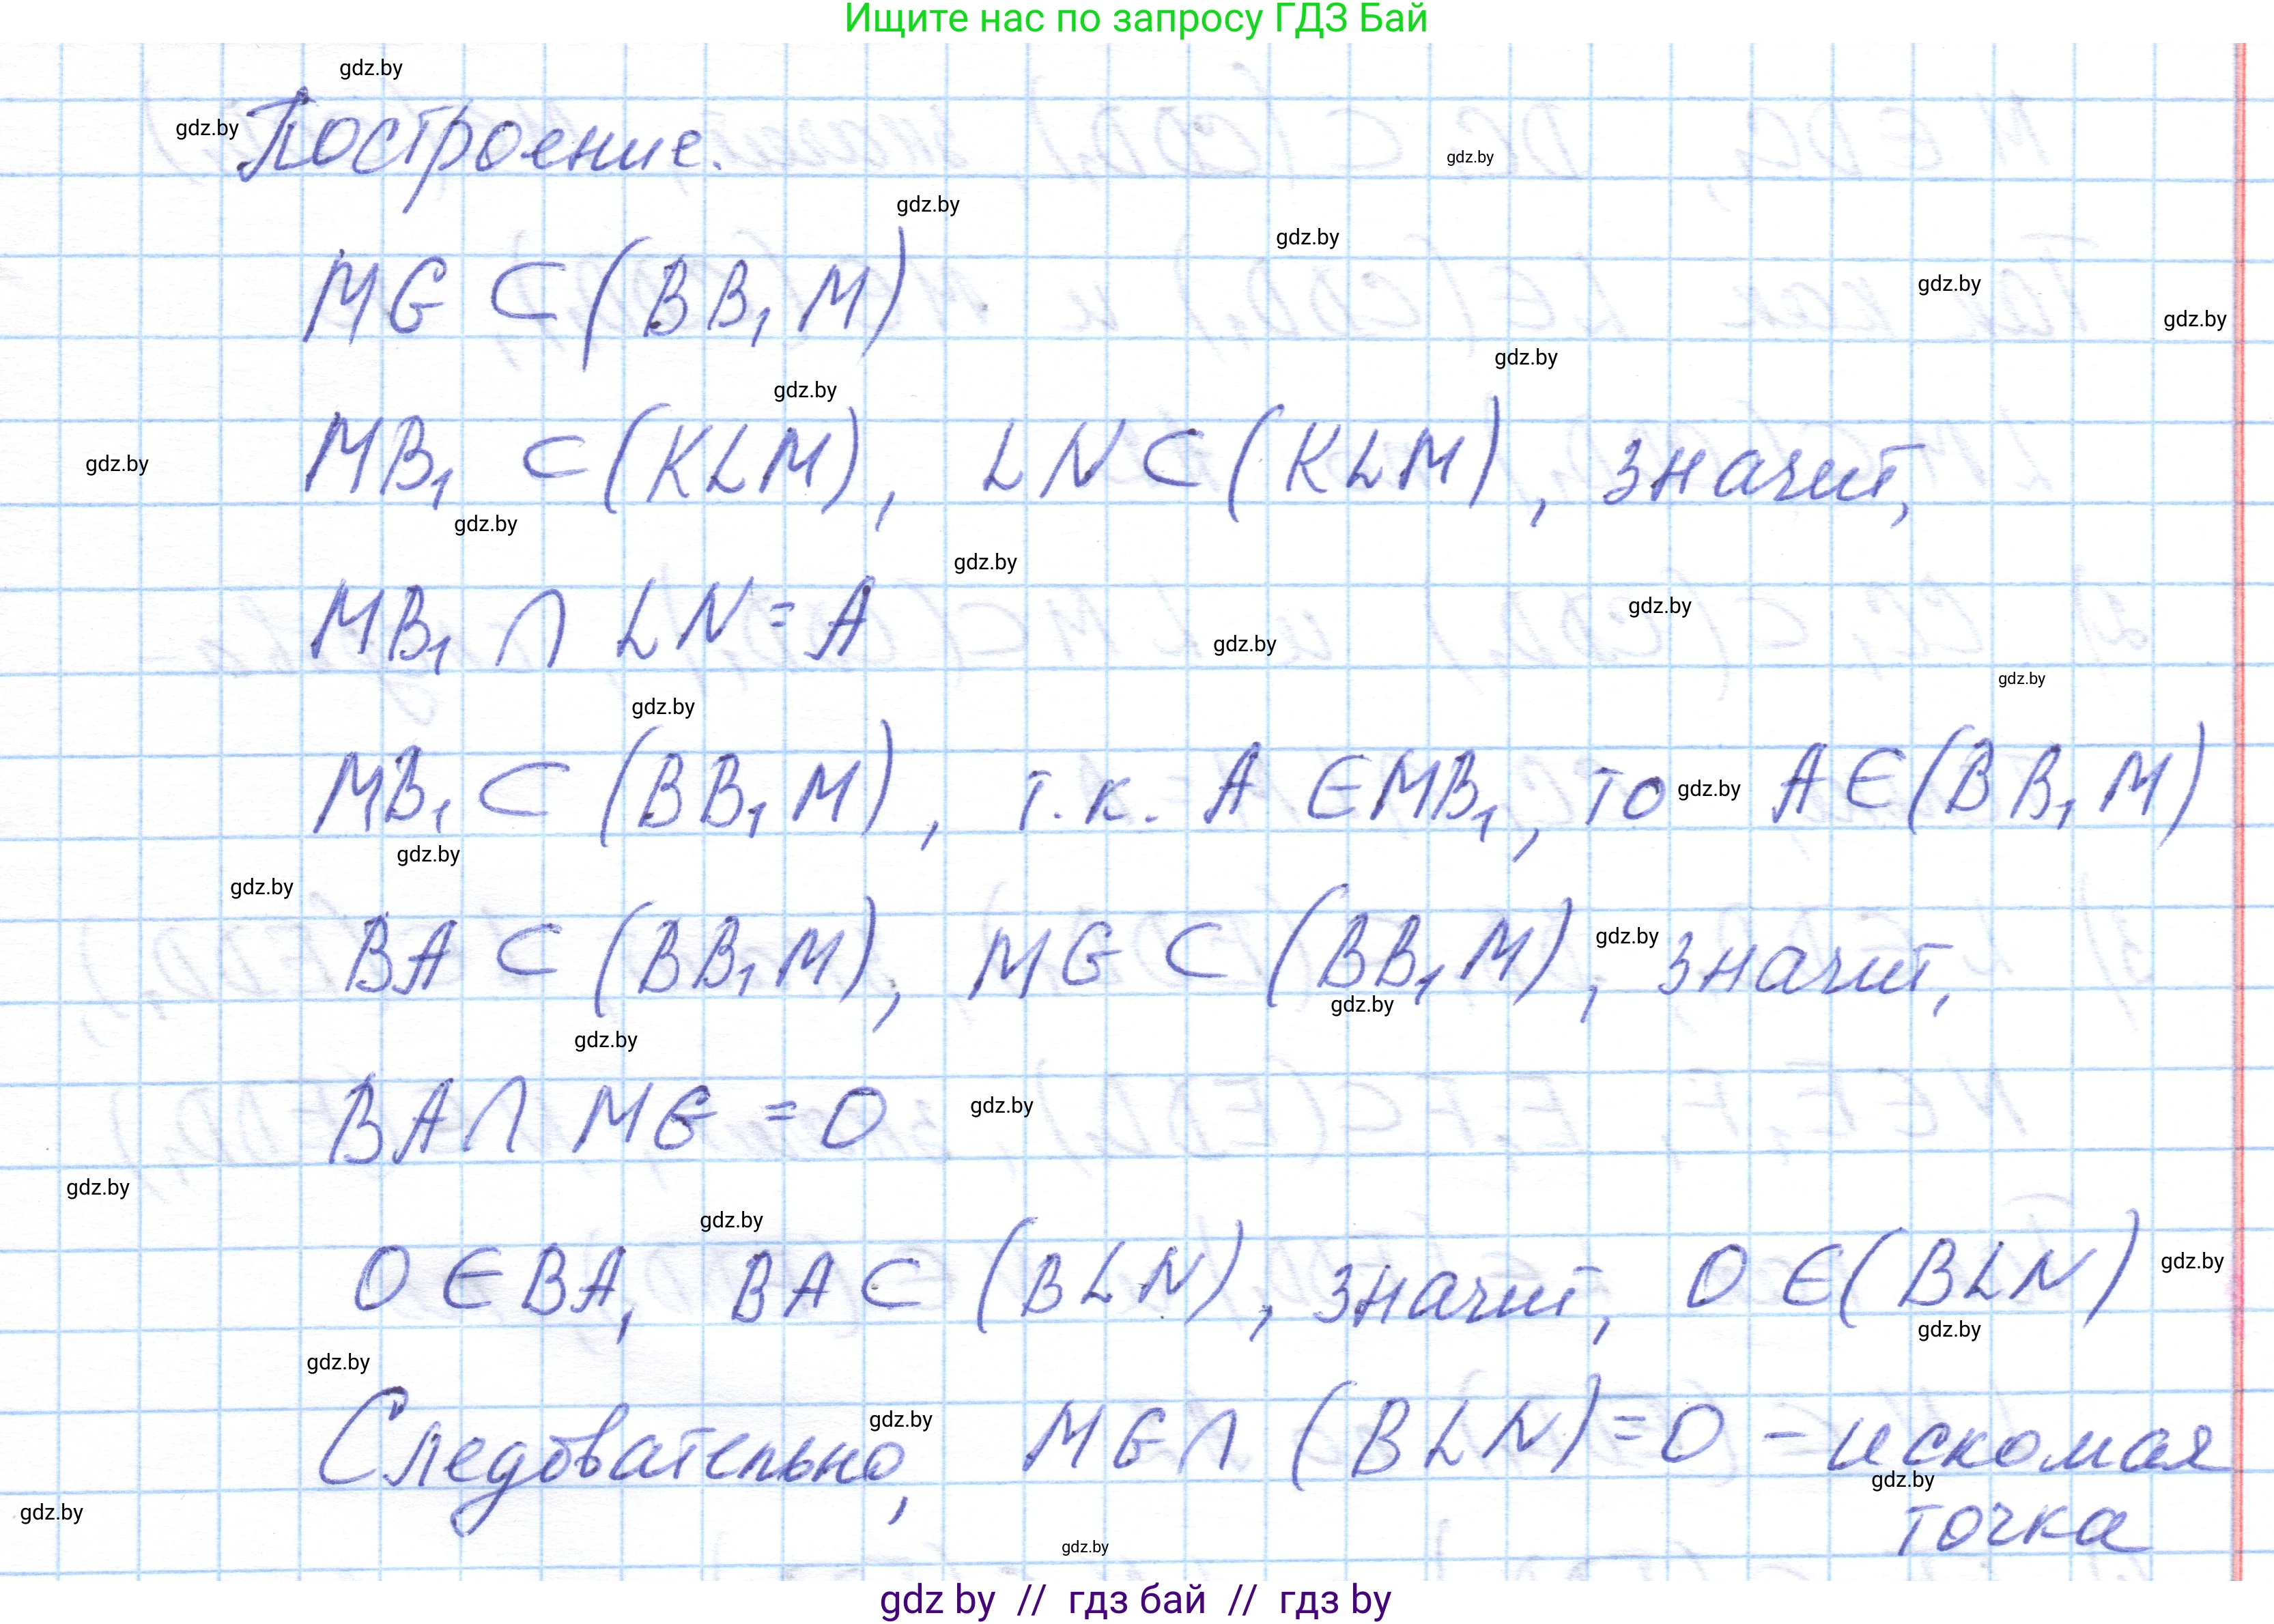 Ищите нас по запросу ГДЗ Бай
gdz.by
Построение.
gdz.by
gdz.by
gdz.by
gdz.by
MG ⊂ (BB₁M)
gdz.by
gdz.by
gdz.by
gdz.by
MB₁ ⊂ (KLM), LN ⊂ (KLM), значит,
gdz.by
gdz.by
gdz.by
MB₁ ∩ LN = A
gdz.by
gdz.by
gdz.by
gdz.by
MB₁ ⊂ (BB₁M), т.к. A ∈ MB₁, то gdz.by A ∈ (BB₁M)
gdz.by
gdz.by
BA ⊂ (BB₁M), MG ⊂ (BB₁M), gdz.by значит,
gdz.by
gdz.by
BA ∩ MG = O
gdz.by
gdz.by
gdz.by
O ∈ BA, BA ⊂ (BLN), значит, O ∈ (BLN)
gdz.by
gdz.by
gdz.by
gdz.by
Следовательно, MG ∩ (BLN) = O – искомая
gdz.by
gdz.by
точка
gdz.by
gdz by // гдз бай // гдз by